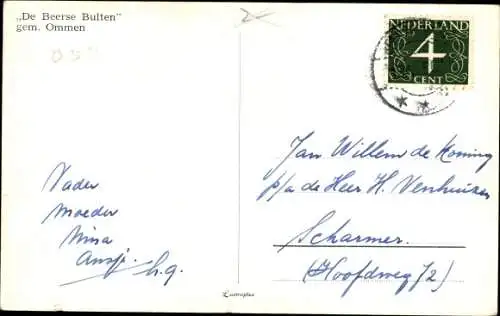 „De Beerse Bulten”
gem. Ommen
2
NEDERLAND
4
CENT
Vader
Moeder
Nina
Ansje
h.g.
Jan Willem de Koning
p/a de Heer H. Venhuizen
Scharmer.
(Hoofdweg 72)